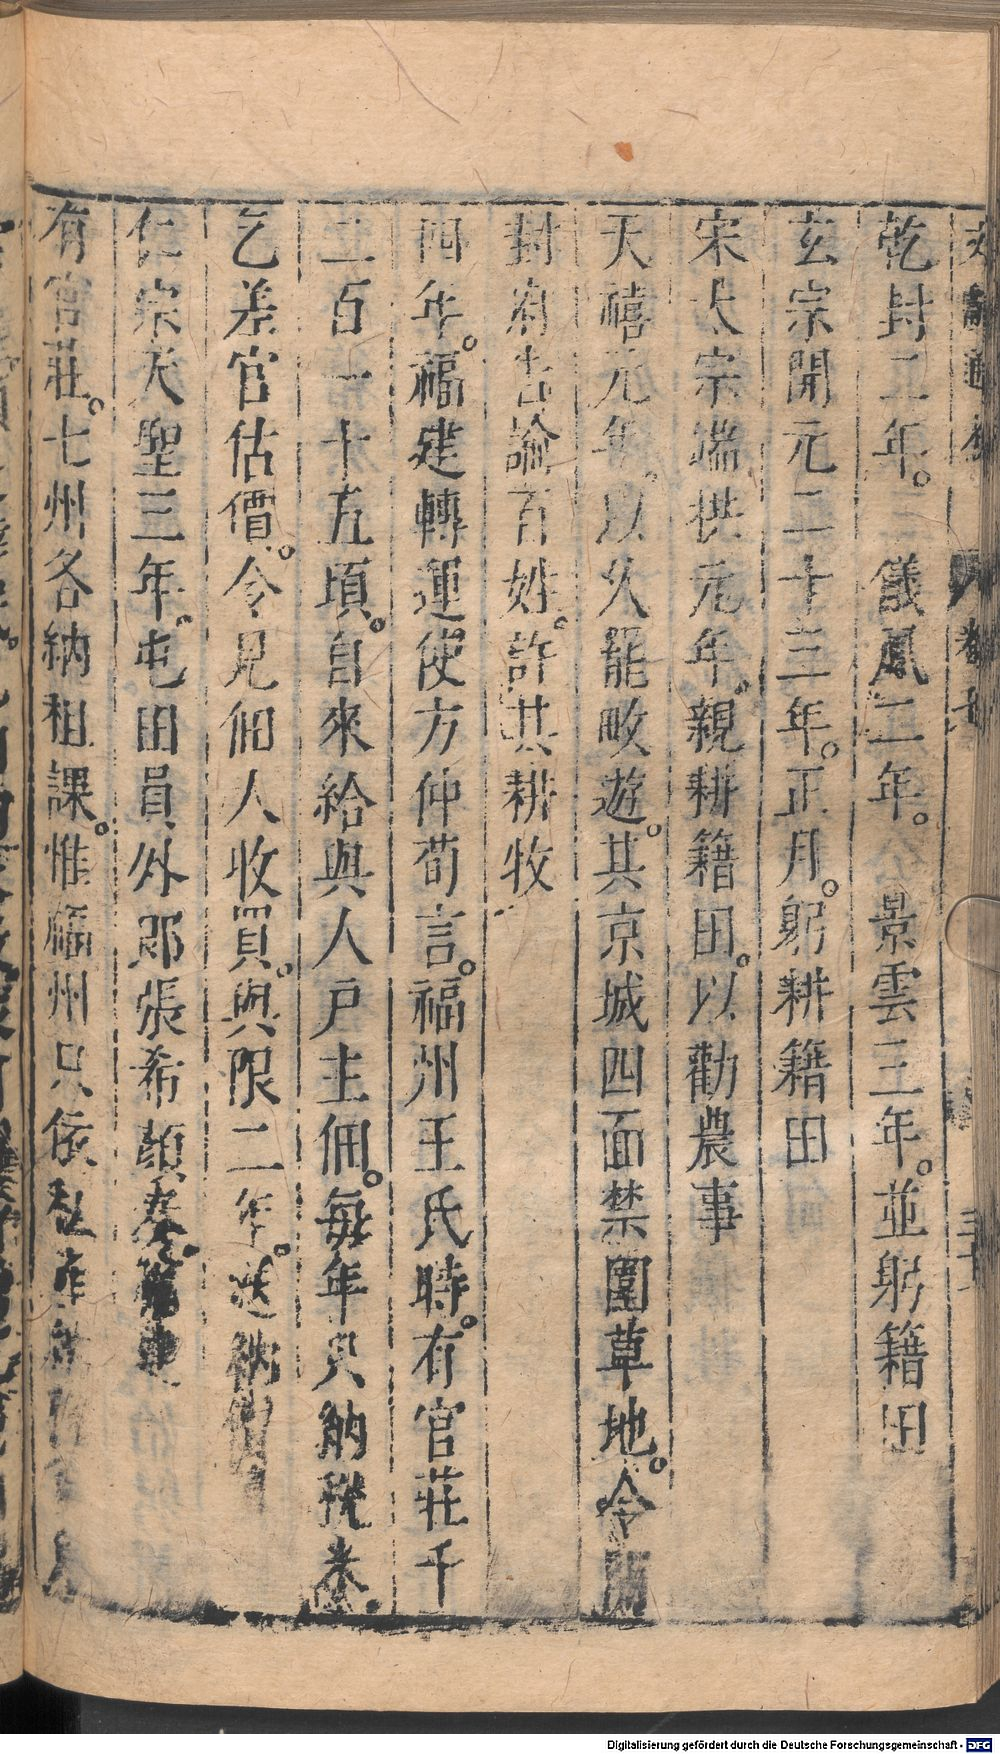 乾封二年。儀鳳二年。景雲三年。並躬籍田
玄宗開元二十三年。正月。躬耕籍田
宋太宗端拱元年。親耕籍田。以勸農事
天禧元年。以久罷畋遊。其京城四面禁圍草地。令開
封府告諭百姓。許其耕牧
四年。福建轉運使方仲荀言。福州王氏時。有官莊千
二百一十五頃。自來給與人戶主佃。每年只納稅米。
乞差官估價。令見佃人收買。與限二年。送納價
仁宗天聖三年。屯田員外郎張希顏奏。
有官莊。七州各納租課。惟福州只依私產
Digitalisierung gefördert durch die Deutsche Forschungsgemeinschaft - DFG